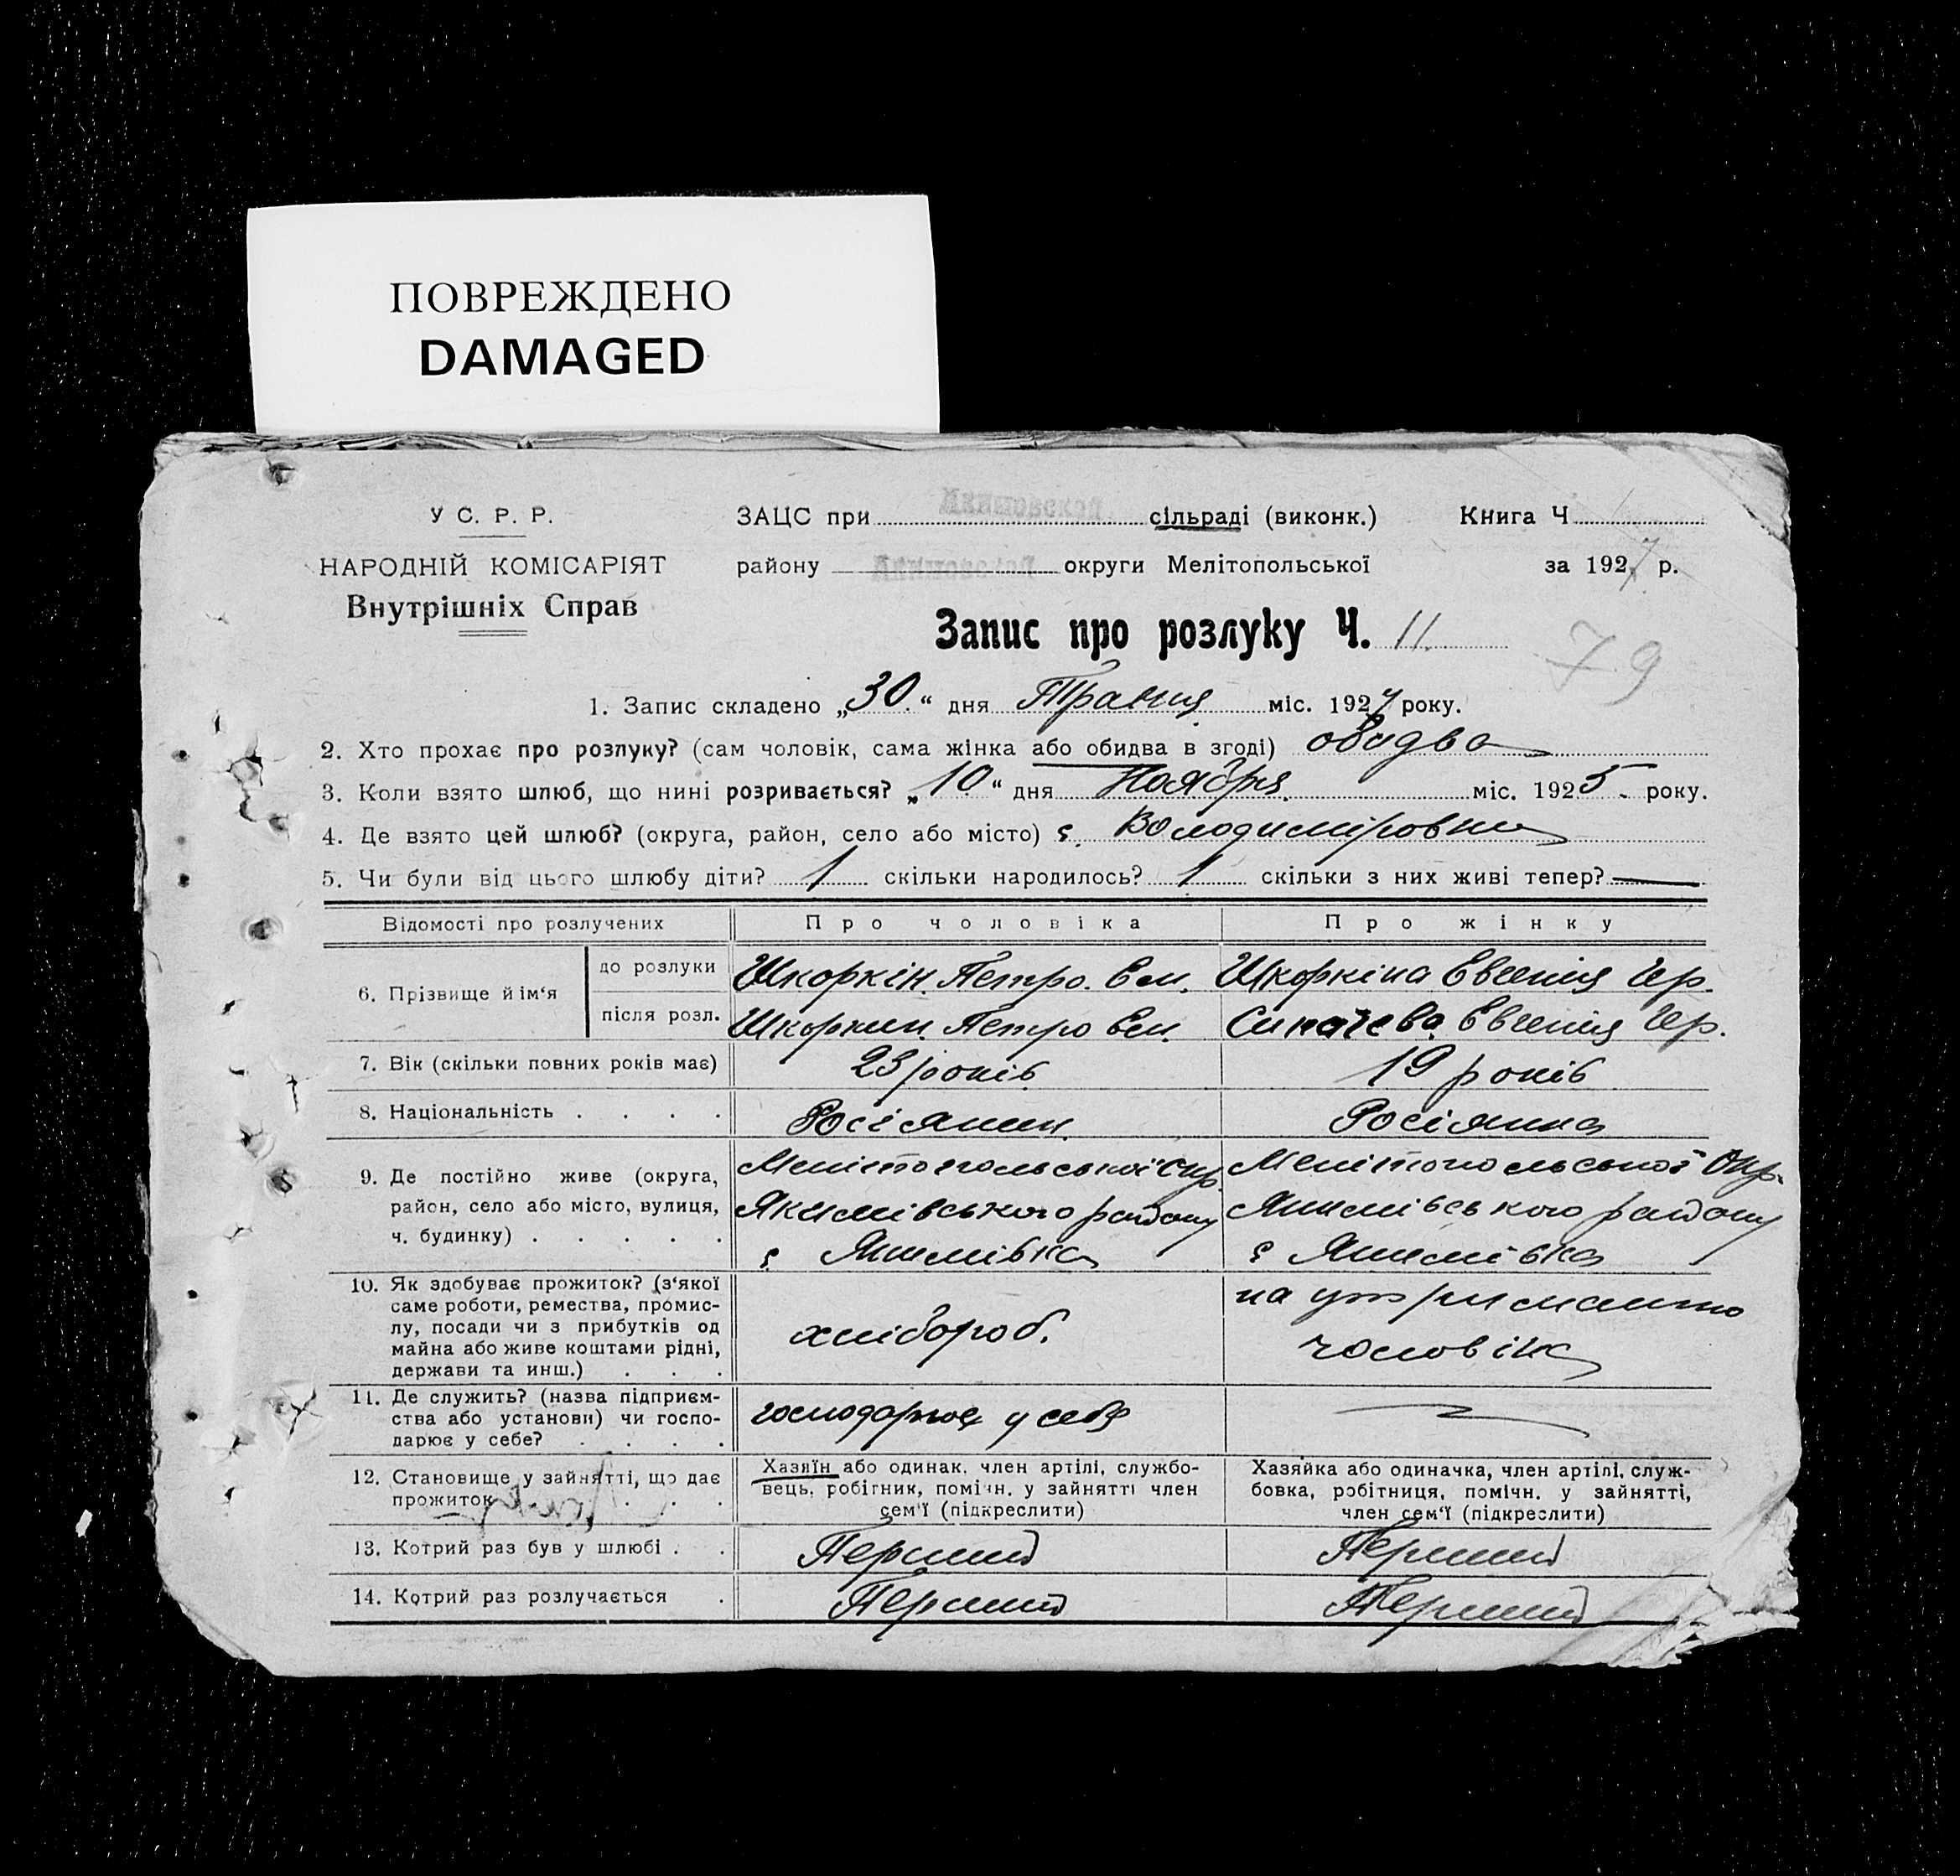 ПОВРЕЖДЕНО
DAMAGED
У С. Р. Р.
НАРОДНІЙ КОМІСАРІЯТ
Внутрішніх Справ
ЗАЦС при Акимовской сільраді (виконк.) Книга Ч
району округи Мелітопольської за 1927 р.
Запис про розлуку Ч. 11.
79
1. Запис складено „30“ дня Травня міс. 1927 року.
2. Хто прохає про розлуку? (сам чоловік, сама жінка або обидва в згоді) обидва
3. Коли взято шлюб, що нині розривається? „10“ дня Ноября міс. 1925 року.
4. Де взято цей шлюб? (округа, район, село або місто) с. Володиміровки
5. Чи були від цього шлюбу діти? 1 скільки народилось? 1 скільки з них живі тепер? —
Відомості про розлучених Про чоловіка Про жінку
6. Прізвище й ім‘я
до розлуки Шкоркін Петро Ем. Шкоркіна Евгенія Гр.
після розл. Шкоркин Петро Ем. Евгенія Гр.
7. Вік (скільки повних років має) 23 років 19 років
8. Національність . . . . Росіянин Росіянка
9. Де постійно живе (округа,
район, село або місто, вулиця,
ч. будинку) . . . . .
Мелітопольської Окр.
Якимівського району
с Якимівка
Мелітопольської Окр.
Якимівського району
с Якимівка
10. Як здобуває прожиток? (з‘якої
саме роботи, ремества, промис-
лу, посади чи з прибутків од
майна або живе коштами рідні,
держави та инш.) . . .
хлібороб.
на утриманню
чоловіка
11. Де служить? (назва підприєм-
ства або установи) чи госпо-
дарює у себе? . . . .
господарює у себе
12. Становище у зайнятті, що дає
прожиток . . .
Хазяїн або одинак, член артілі, службо-
вець, робітник, помічн. у зайнятті член
сем‘ї (підкреслити)
Хазяйка або одиначка, член артілі, служ-
бовка, робітниця, помічн. у зайнятті,
член сем‘ї (підкреслити)
13. Котрий раз був у шлюбі . . Перший Перший
14. Котрий раз розлучається . Перший Перший